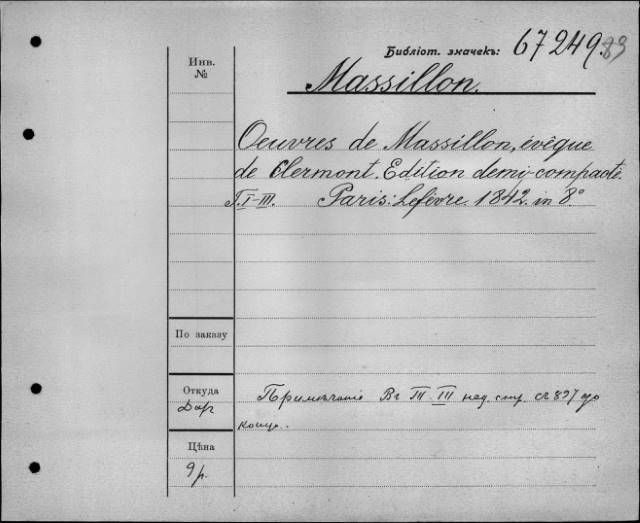 Библіот. значекъ: 67249.
Инв.
№
Massillon.
Oeuvres de Massillon, évêque
de Clermont. Edition demi-compacte.
T. I-III. Paris: Lefèvre. 1842. in 8°
По заказу
Откуда
Дар
Примѣчаніе Въ Т. III нед. стр. съ 837 до
конца.
Цѣна
9 р.